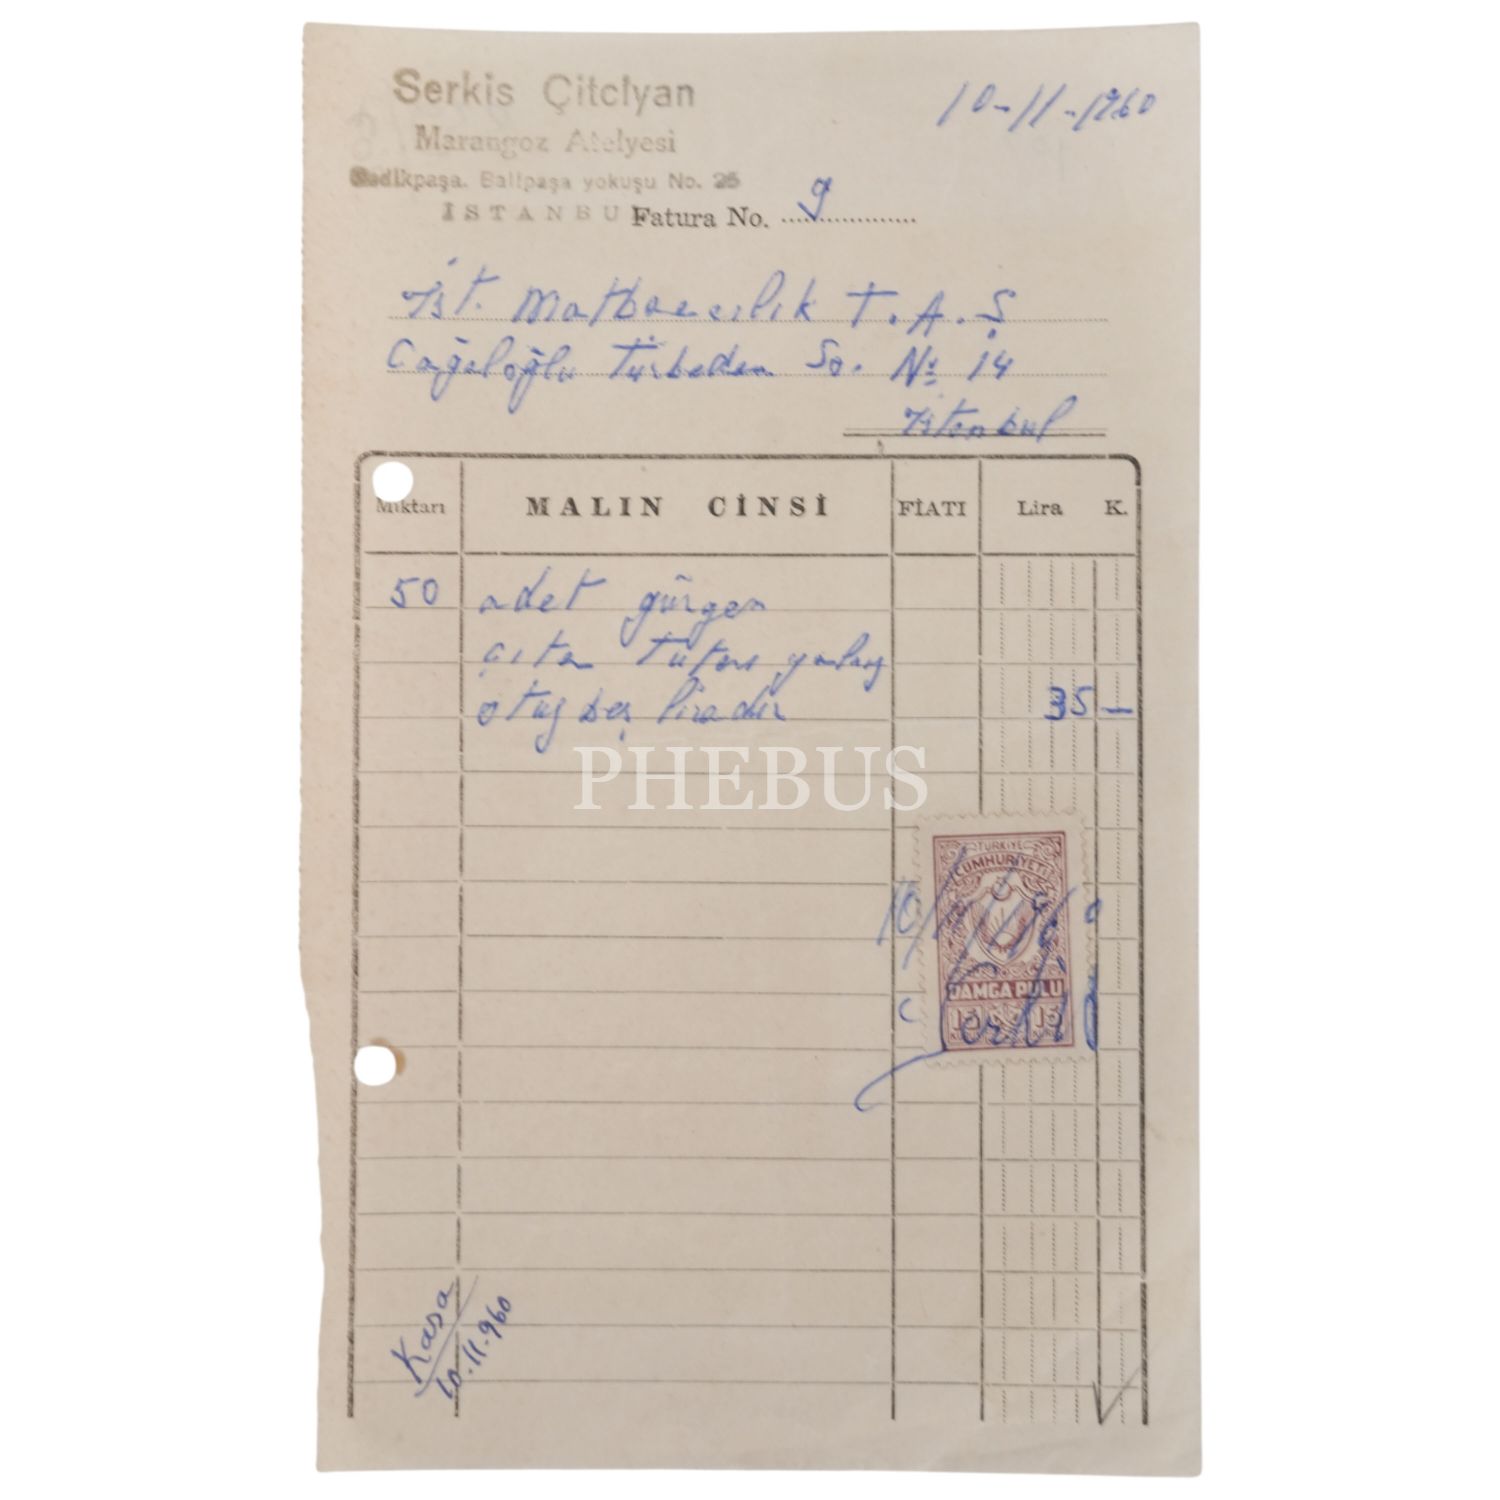 Serkis Çitciyan
10-11-1960
Marangoz Atelyesi
Gedikpaşa. Balipaşa yokuşu No. 25
İSTANBUL
Fatura No. 9
İst. Matbaacılık T.A.Ş
Cağaloğlu Türbedar So. No 14
İstanbul
Miktarı MALIN CİNSİ FİATI Lira K.
50 adet gürgen
çıta Tutarı yalnız
otuzbeş liradır 35 —
PHEBUS
TÜRKİYE
CUMHURİYETİ
10/11/960
DAMGA PULU
15 15
Kasa
10.11.960